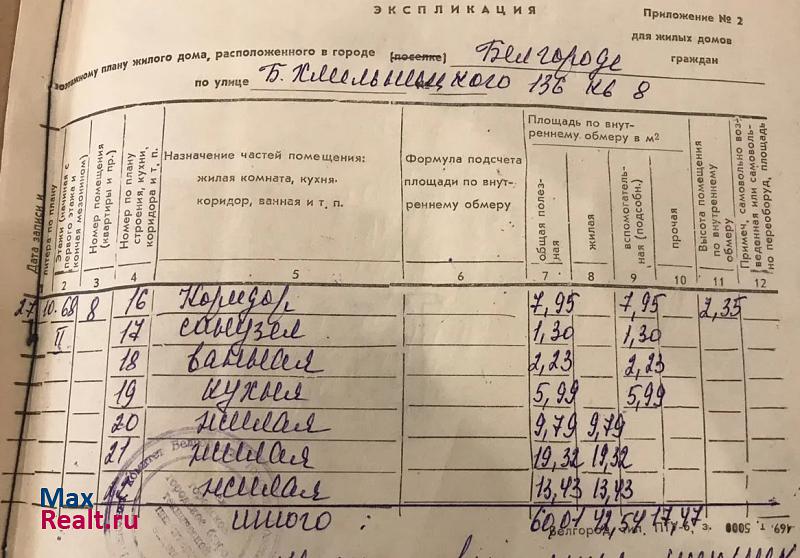 ЭКСПЛИКАЦИЯ
Приложение № 2
для жилых домов
граждан
поэтажному плану жилого дома, расположенного в городе (поселке) Белгороде
по улице Б. Хмельницкого 136 кв 8
Дата записи и литера по плану
Этажи (начиная с первого этажа и кончая мезонином)
Номер помещения (квартиры и пр.)
Номер по плану строения, кухни, коридора и т. п.
Назначение частей помещения:
жилая комната, кухня
коридор, ванная и т. п.
Формула подсчета
площади по внут-
реннему обмеру
Площадь по внут-
реннему обмеру в м2
общая полез-
ная
жилая
вспомогатель-
ная (подсобн.)
прочая
Высота помещения
по внутреннему
обмеру
Примеч. самовольно воз-
веденная или самоволь-
но переоборуд. площадь
2 3 4 5 6 7 8 9 10 11 12
27 10.68 8 16 Коридор 7,95 7,95 2,35
II 17 санузел 1,30 1,30
18 ванная 2,23 2,23
19 кухня 5,99 5,99
20 жилая 9,79 9,79
21 жилая 19,32 19,32
жилая 13,43 13,43
итого: 60,01 42,54 17,47
Белгород, тип. ПТУ-6, з. 469. т. 5000
Max
Realt.ru